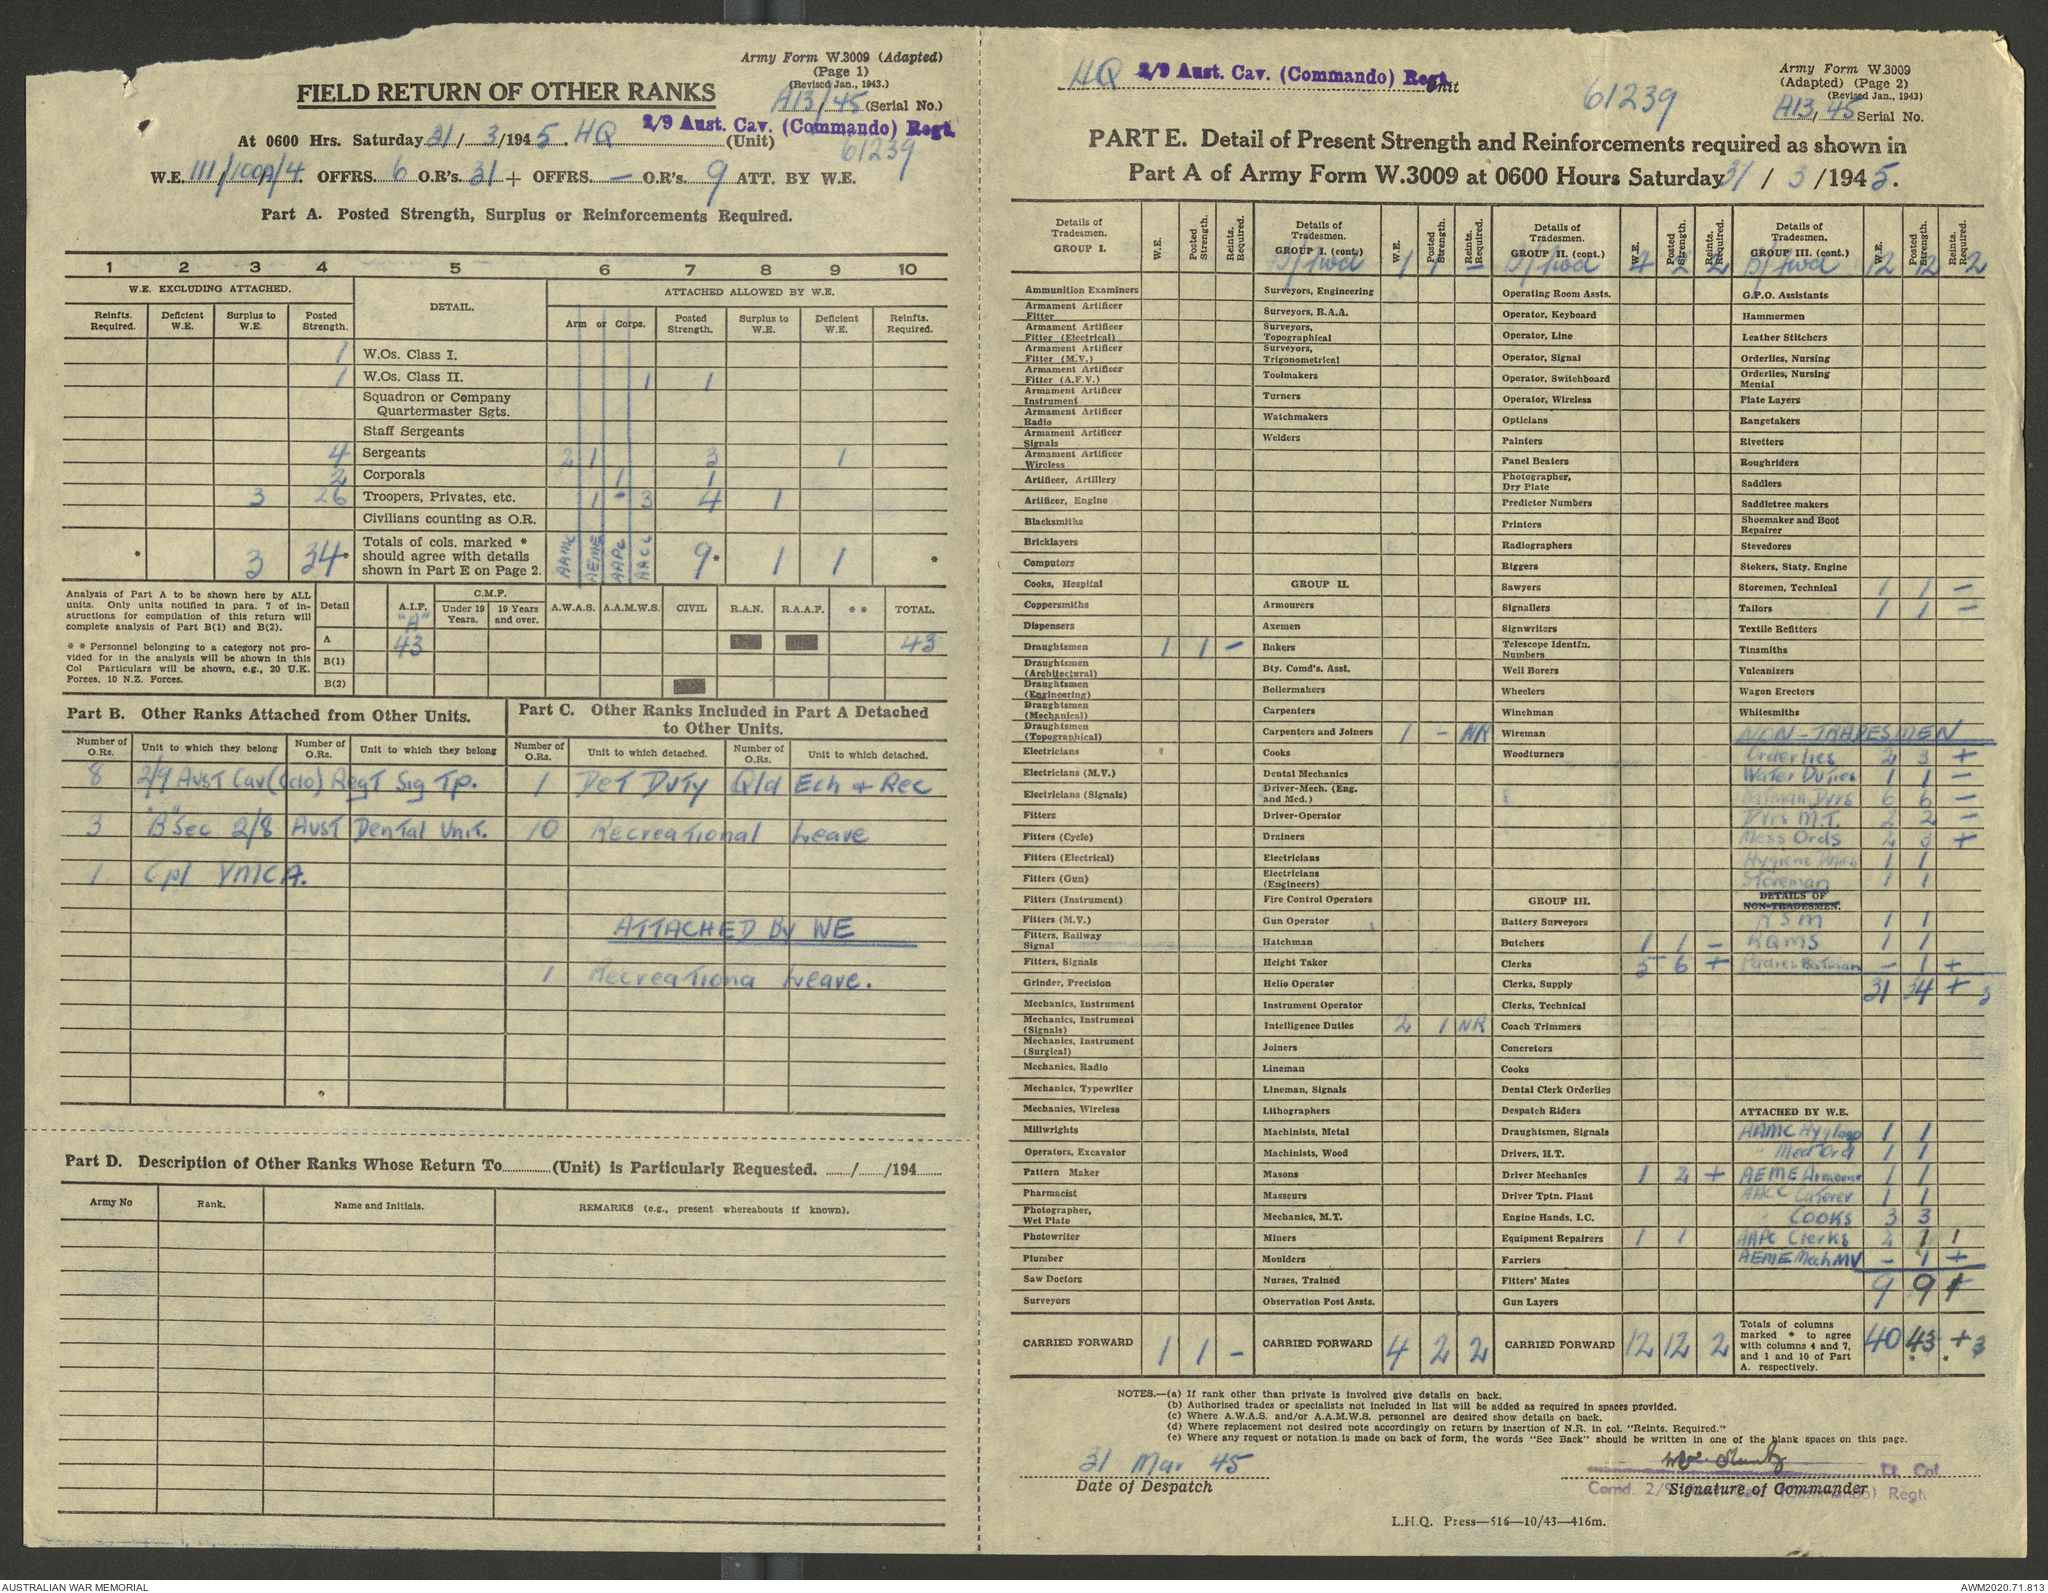 Army Form W.3009 (Adapted)
(Page 1)
(Revised Jan., 1943.)
FIELD RETURN OF OTHER RANKS
A13/45 (Serial No.)
2/9 Aust. Cav. (Commando) Regt.
At 0600 Hrs. Saturday 31/3/1945. HQ (Unit)
61239
W.E. 111/100A/4. OFFRS. 6 O.R's. 31 + OFFRS. — O.R's. 9 ATT. BY W.E.
Part A. Posted Strength, Surplus or Reinforcements Required.
1 2 3 4 5 6 7 8 9 10
W.E. EXCLUDING ATTACHED. DETAIL. ATTACHED ALLOWED BY W.E.
Reinfts. Required. Deficient W.E. Surplus to W.E. Posted Strength. Arm or Corps. Posted Strength. Surplus to W.E. Deficient W.E. Reinfts. Required.
1 W.Os. Class I.
1 W.Os. Class II. 1 1
Squadron or Company Quartermaster Sgts.
Staff Sergeants
4 Sergeants 2 1 3 1
2 Corporals 1 1
3 26 Troopers, Privates, etc. 1 3 4 1
Civilians counting as O.R.
* 3 34* Totals of cols. marked * should agree with details shown in Part E on Page 2. AAMC AEME AAPC AACC 9* 1 1 *
Analysis of Part A to be shown here by ALL units. Only units notified in para. 7 of instructions for compilation of this return will complete analysis of Part B(1) and B(2).
* * Personnel belonging to a category not provided for in the analysis will be shown in this Col Particulars will be shown, e.g., 20 U.K. Forces, 10 N.Z. Forces.
Detail A.I.F. "A" C.M.F. Under 19 Years. 19 Years and over. A.W.A.S. A.A.M.W.S. CIVIL R.A.N. R.A.A.F. * * TOTAL.
A 43 43
B(1)
B(2)
Part B. Other Ranks Attached from Other Units.
Part C. Other Ranks Included in Part A Detached to Other Units.
Number of O.Rs. Unit to which they belong Number of O.Rs. Unit to which they belong Number of O.Rs. Unit to which detached. Number of O.Rs. Unit to which detached.
8 2/9 Aust Cav (Cdo) Regt Sig Tp. 1 Det Duty Qld Ech & Rec
3 "B" Sec 2/8 Aust Dental Unit. 10 Recreational Leave
1 Cpl YMCA.
ATTACHED BY WE
1 Recreationa Leave.
Part D. Description of Other Ranks Whose Return To (Unit) is Particularly Requested. / /194
Army No Rank. Name and Initials. REMARKS (e.g., present whereabouts if known).
HQ 2/9 Aust. Cav. (Commando) Regt. Unit
61239
Army Form W.3009
(Adapted) (Page 2)
(Revised Jan., 1943)
A13/45 Serial No.
PART E. Detail of Present Strength and Reinforcements required as shown in
Part A of Army Form W.3009 at 0600 Hours Saturday 31/3/1945.
Details of Tradesmen. GROUP I. W.E. Posted Strength. Reints. Required.
Ammunition Examiners
Armament Artificer Fitter
Armament Artificer Fitter (Electrical)
Armament Artificer Fitter (M.V.)
Armament Artificer Fitter (A.F.V.)
Armament Artificer Instrument
Armament Artificer Radio
Armament Artificer Signals
Armament Artificer Wireless
Artificer, Artillery
Artificer, Engine
Blacksmiths
Bricklayers
Computors
Cooks, Hospital
Coppersmiths
Dispensers
Draughtsmen 1 1 —
Draughtsmen (Architectural)
Draughtsmen (Engineering)
Draughtsmen (Mechanical)
Draughtsmen (Topographical)
Electricians
Electricians (M.V.)
Electricians (Signals)
Fitters
Fitters (Cycle)
Fitters (Electrical)
Fitters (Gun)
Fitters (Instrument)
Fitters (M.V.)
Fitters, Railway Signal
Fitters, Signals
Grinder, Precision
Mechanics, Instrument
Mechanics, Instrument (Signals)
Mechanics, Instrument (Surgical)
Mechanics, Radio
Mechanics, Typewriter
Mechanics, Wireless
Millwrights
Operators, Excavator
Pattern Maker
Pharmacist
Photographer, Wet Plate
Photowriter
Plumber
Saw Doctors
Surveyors
CARRIED FORWARD 1 1 —
Details of Tradesmen. GROUP I. (cont.) W.E. Posted Strength. Reints. Required.
B/fwd 1 1 —
Surveyors, Engineering
Surveyors, R.A.A.
Surveyors, Topographical
Surveyors, Trigonometrical
Toolmakers
Turners
Watchmakers
Welders
GROUP II.
Armourers
Axemen
Bakers
Bty. Comd's. Asst.
Boilermakers
Carpenters
Carpenters and Joiners 1 — NR
Cooks
Dental Mechanics
Driver-Mech. (Eng. and Med.)
Driver-Operator
Drainers
Electricians
Electricians (Engineers)
Fire Control Operators
Gun Operator
Hatchman
Height Taker
Helio Operator
Instrument Operator
Intelligence Duties 2 1 NR
Joiners
Lineman
Lineman, Signals
Lithographers
Machinists, Metal
Machinists, Wood
Masons
Masseurs
Mechanics, M.T.
Miners
Moulders
Nurses, Trained
Observation Post Assts.
CARRIED FORWARD 4 2 2
Details of Tradesmen. GROUP II. (cont.) W.E. Posted Strength. Reints. Required.
B/fwd 4 2 2
Operating Room Assts.
Operator, Keyboard
Operator, Line
Operator, Signal
Operator, Switchboard
Operator, Wireless
Opticians
Painters
Panel Beaters
Photographer, Dry Plate
Predictor Numbers
Printers
Radiographers
Riggers
Sawyers
Signallers
Signwriters
Telescope Identfn. Numbers
Well Borers
Wheelers
Winchman
Wireman
Woodturners
GROUP III.
Battery Surveyors
Butchers 1 1 —
Clerks 5 6 +
Clerks, Supply
Clerks, Technical
Coach Trimmers
Concretors
Cooks
Dental Clerk Orderlies
Despatch Riders
Draughtsmen, Signals
Drivers, H.T.
Driver Mechanics 1 2 +
Driver Tptn. Plant
Engine Hands, I.C.
Equipment Repairers 1 1
Farriers
Fitters' Mates
Gun Layers
CARRIED FORWARD 12 12 2
Details of Tradesmen. GROUP III. (cont.) W.E. Posted Strength. Reints. Required.
B/fwd 12 12 2
G.P.O. Assistants
Hammermen
Leather Stitchers
Orderlies, Nursing
Orderlies, Nursing Mental
Plate Layers
Rangetakers
Rivetters
Roughriders
Saddlers
Saddletree makers
Shoemaker and Boot Repairer
Stevedores
Stokers, Staty. Engine
Storemen, Technical 1 1 —
Tailors 1 1 —
Textile Refitters
Tinsmiths
Vulcanizers
Wagon Erectors
Whitesmiths
NON-TRADESMEN
Orderlies 2 3 +
Water Duties 1 1 —
Batman Dvrs 6 6 —
Dvrs M.T. 2 2 —
Mess Ords 2 3 +
Hygiene Duties 1 1
Storeman 1 1
DETAILS OF NON-TRADESMEN.
RSM 1 1
RQMS 1 1
Padres Batman — 1 +
31 34 + 3
ATTACHED BY W.E.
AAMC Hyg 1 1
" Med Ord 1 1
AEME Armourer 1 1
AACC Caterer 1 1
" COOKS 3 3
AAPC Clerks 2 1 1
AEME Mech MV — 1 +
9 9 +
Totals of columns marked * to agree with columns 4 and 7, and 1 and 10 of Part A. respectively. 40 43 * + 3 *
NOTES.—(a) If rank other than private is involved give details on back.
(b) Authorised trades or specialists not included in list will be added as required in spaces provided.
(c) Where A.W.A.S. and/or A.A.M.W.S. personnel are desired show details on back.
(d) Where replacement not desired note accordingly on return by insertion of N.R. in col. "Reints. Required."
(e) Where any request or notation is made on back of form, the words "See Back" should be written in one of the blank spaces on this page.
31 Mar 45
Date of Despatch
Lt Col
Comd. 2/9 Aust. Cav. (Commando) Regt.
Signature of Commander
L.H.Q. Press—516—10/43—416m.
AUSTRALIAN WAR MEMORIAL
AWM2020.71.813